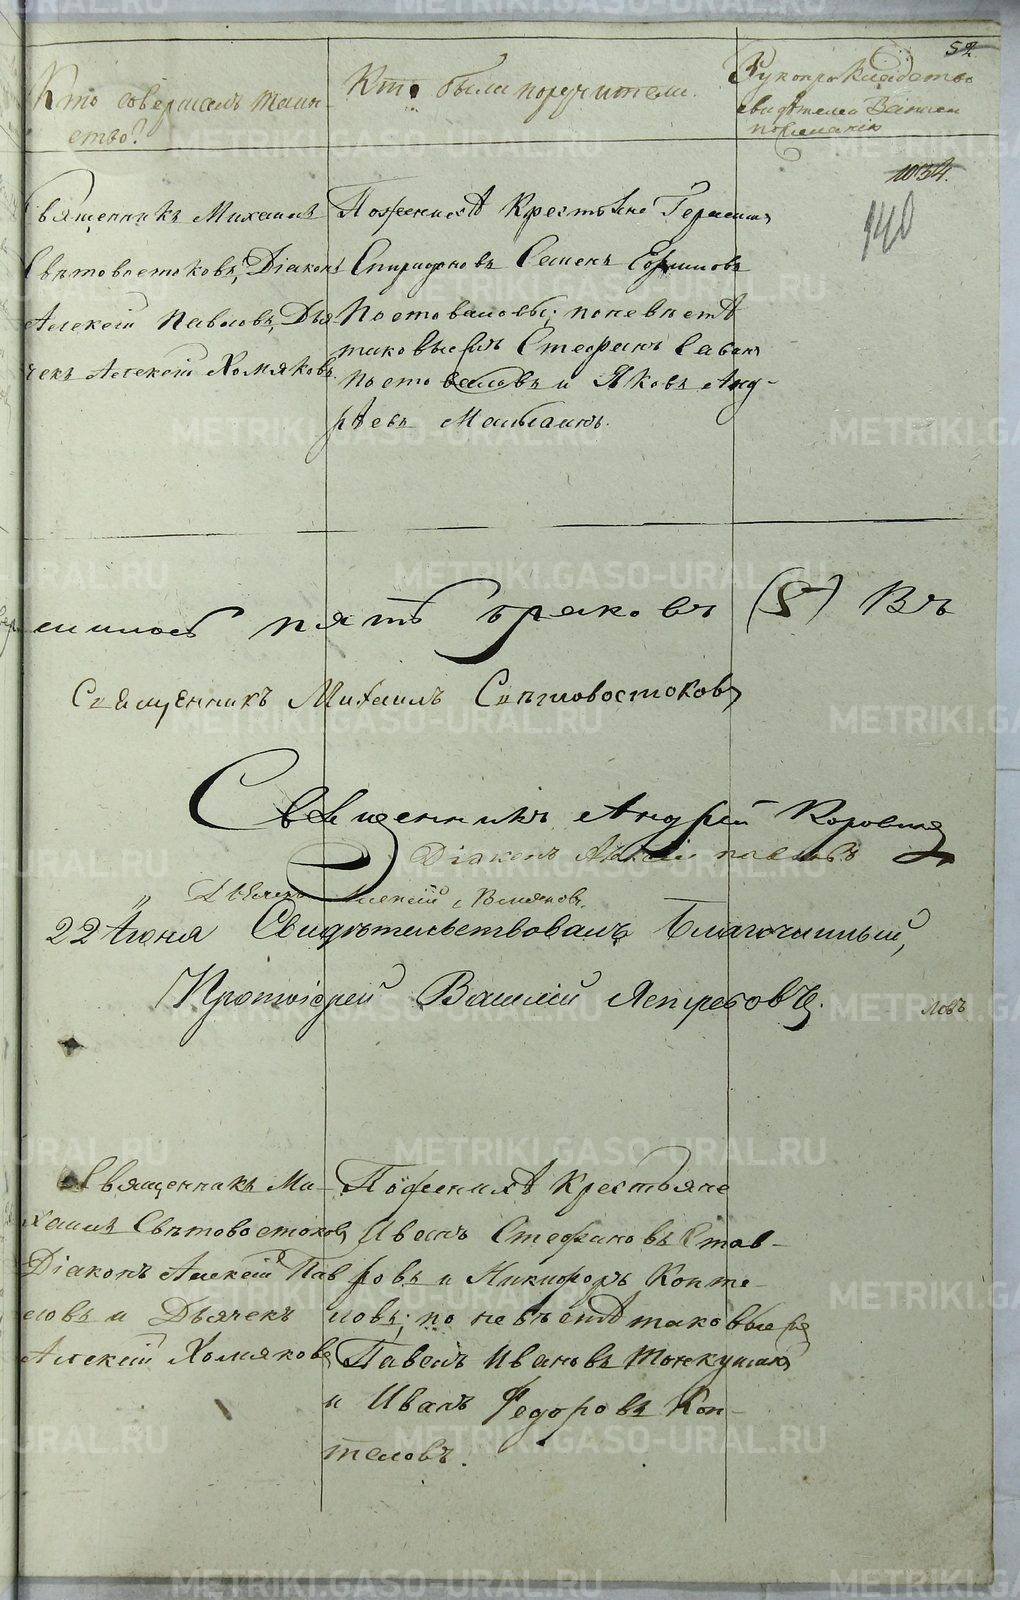 52.
Кто совершалъ таин-
ство?
Кто были поручители.
Рукоприкладство
свидѣтелей
1034.
140
Священникъ Михаилъ
Свѣтовостоковъ, Діаконъ
Алексій Павловъ, Дья
чекъ Алексій Хомяковъ
По женихѣ Крестьяне Герасимъ
Спиридоновъ Семенъ Ефимовъ
Постоваловы; по невѣстѣ
таковые жъ Стефанъ Саван
Постоваловъ и Яковъ Анд-
рѣевъ
шилось пять браковъ (5) Въ
Священникъ Михаилъ Свѣтловостоковъ
Священникъ Андрей Коровинъ
Діаконъ Алексій Павловъ
Дьячекъ Алексій Хомяковъ
22 Іюня Свидѣтельствовалъ Благочинный,
Протоіерей Василій Ястребовъ.
ловъ
Священникъ Ми-
хаилъ Свѣтовостоковъ
Діаконъ Алексій Пав
ловъ и Дьячекъ
Алексій Хомяковъ
По женихѣ Крестьяне
Иванъ Стефановъ Став-
ровъ и Никифоръ Копте-
ловъ; по невѣстѣ таковые же
Павелъ Ивановъ
и Иванъ Федоровъ Коп-
теловъ.
METRIKI.GASO-URAL.RU